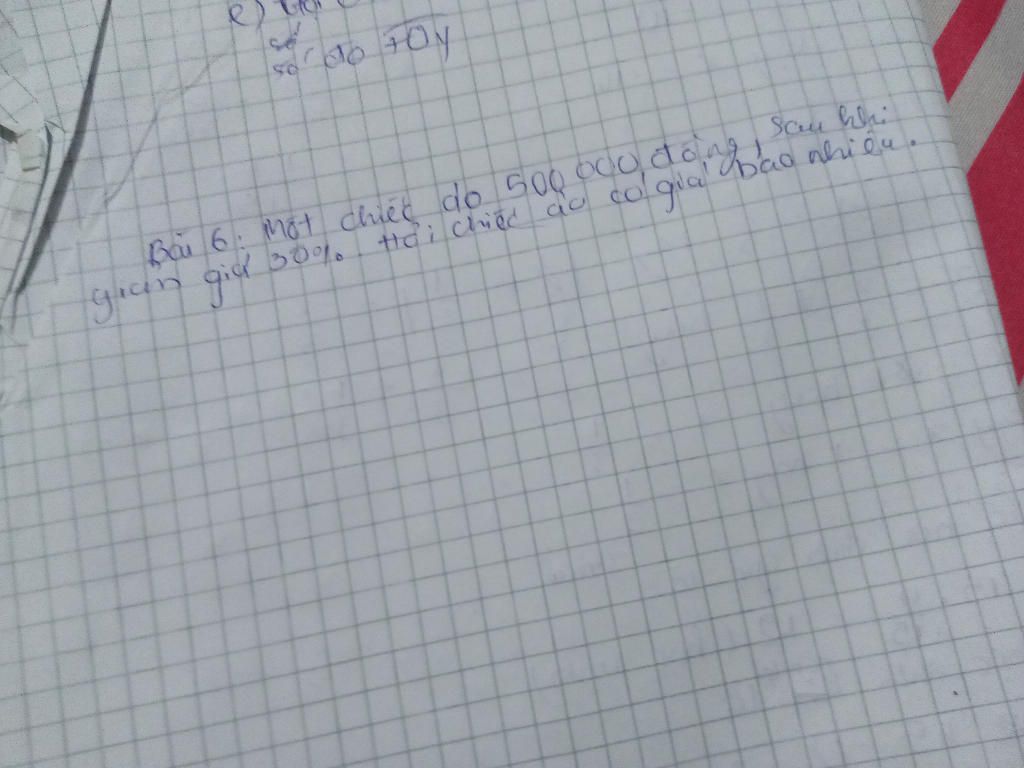 số đo xOy
Bài 6: Một chiếc áo 500 000 đồng, sau khi
giảm giá 30%. Hỏi chiếc áo có giá bao nhiêu.